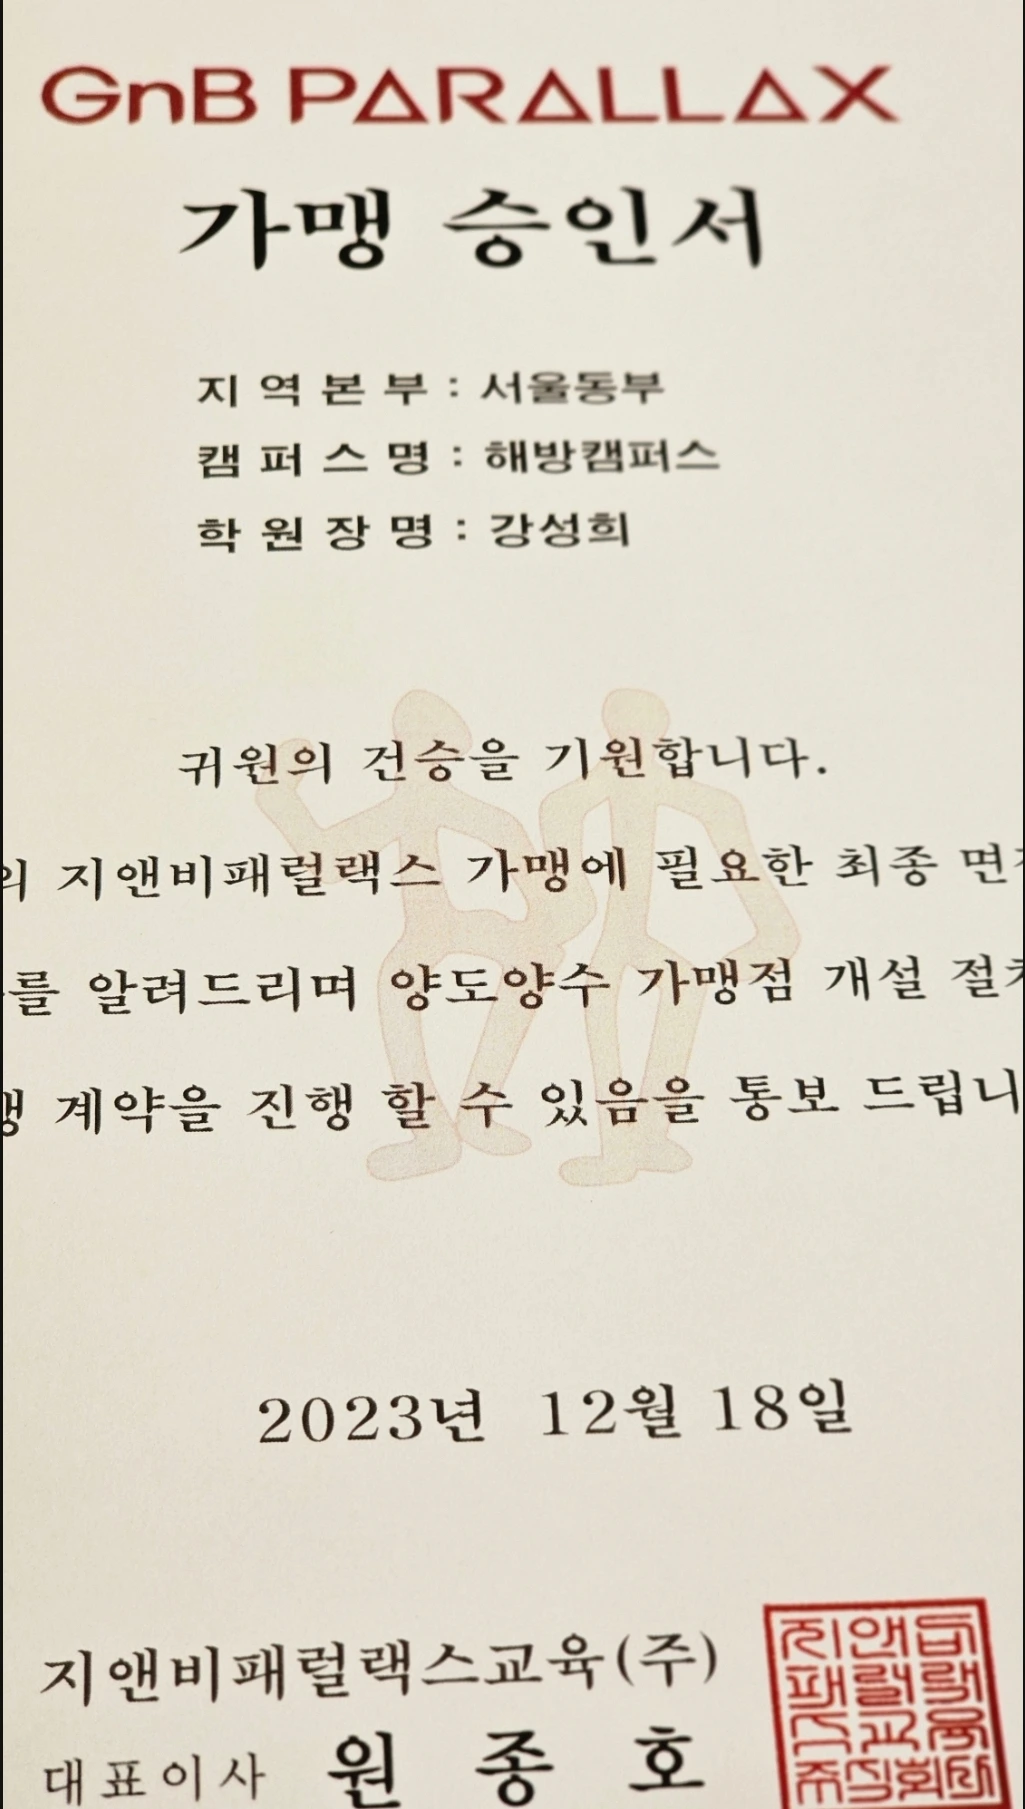 GnB PARALLAX
가맹 승인서
지 역 본 부 : 서울동부
캠 퍼 스 명 : 해방캠퍼스
학 원 장 명 : 강성희
귀원의 건승을 기원합니다.
의 지앤비패럴랙스 가맹에 필요한 최종 면
를 알려드리며 양도양수 가맹점 개설 절
계약을 진행 할 수 있음을 통보 드립니
2023년 12월 18일
지앤비패럴랙스교육(주)
대표이사 원 종 호